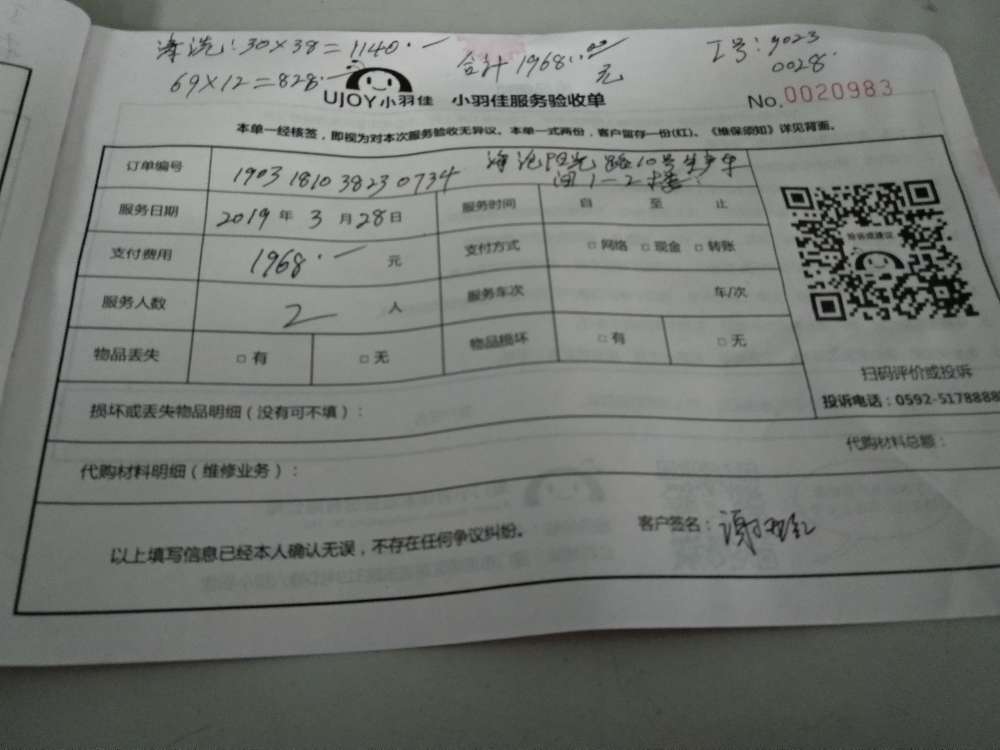 清洗:30×38=1140.一 合计1968.00元 工号:9023
69×12=828.一 0028
UJOY小羽佳 小羽佳服务验收单 No.0020983
本单一经核签,即视为对本次服务验收无异议。本单一式两份,客户留存一份(红)。《维保须知》详见背面。
订单编号 1903181038230734 路10号生产车
间1-2楼
服务日期 2019年3月28日 服务时间 自 至 止
投诉或建议
支付费用 1968.一 元 支付方式 □网络 □现金 □转账
服务人数 2 人 服务车次 车/次
物品丢失 □有 □无 物品损坏 □有 □无
扫码评价或投诉
投诉电话:0592-5178888
损坏或丢失物品明细(没有可不填):
代购材料明细(维修业务): 代购材料总额:
以上填写信息已经本人确认无误,不存在任何争议纠纷。 客户签名: